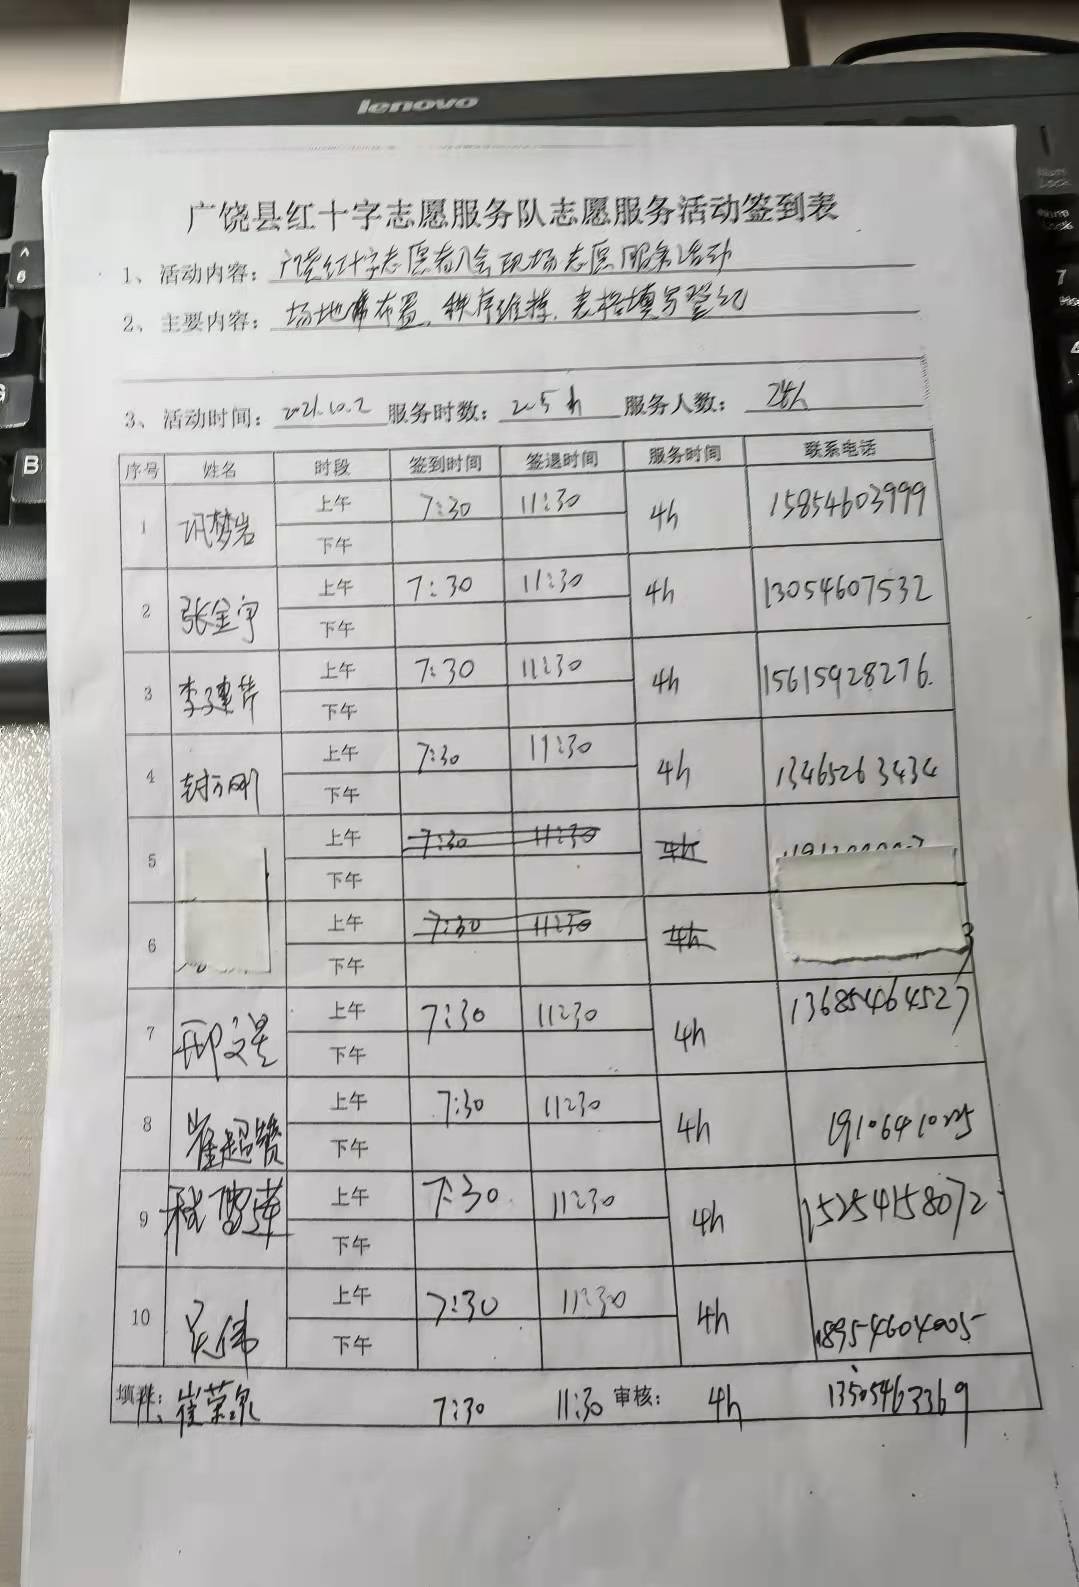 lenovo
广饶县红十字志愿服务队志愿服务活动签到表
1、活动内容：广饶红十字志愿者入会现场志愿服务活动
2、主要内容：场地布置、秩序维持、表格填写登记
3、活动时间：2021.10.2 服务时数： 服务人数：
序号 姓名 时段 签到时间 签退时间 服务时间 联系电话
1 梦岩 上午 7:30 11:30 4h 15854603999
下午
2 张金宇 上午 7:30 11:30 4h 13054607532
下午
3 李建芳 上午 7:30 11:30 4h 15615928276
下午
4 封方刚 上午 7:30 11:30 4h 13465263434
下午
5 上午 7:30 11:30 4h
下午
6 上午 7:30 11:30 4h 3
下午
7 邢文星 上午 7:30 11:30 4h 13685464527
下午
8 崔超赞 上午 7:30 11:30 4h
下午
9 上午 7:30 11:30 4h 15254158072
下午
10 吴伟 上午 7:30 11:30 4h 18954604005
下午
11、崔荣泉 7:30 11:30 审核： 4h 13505463369
B
6
7
Num Lock